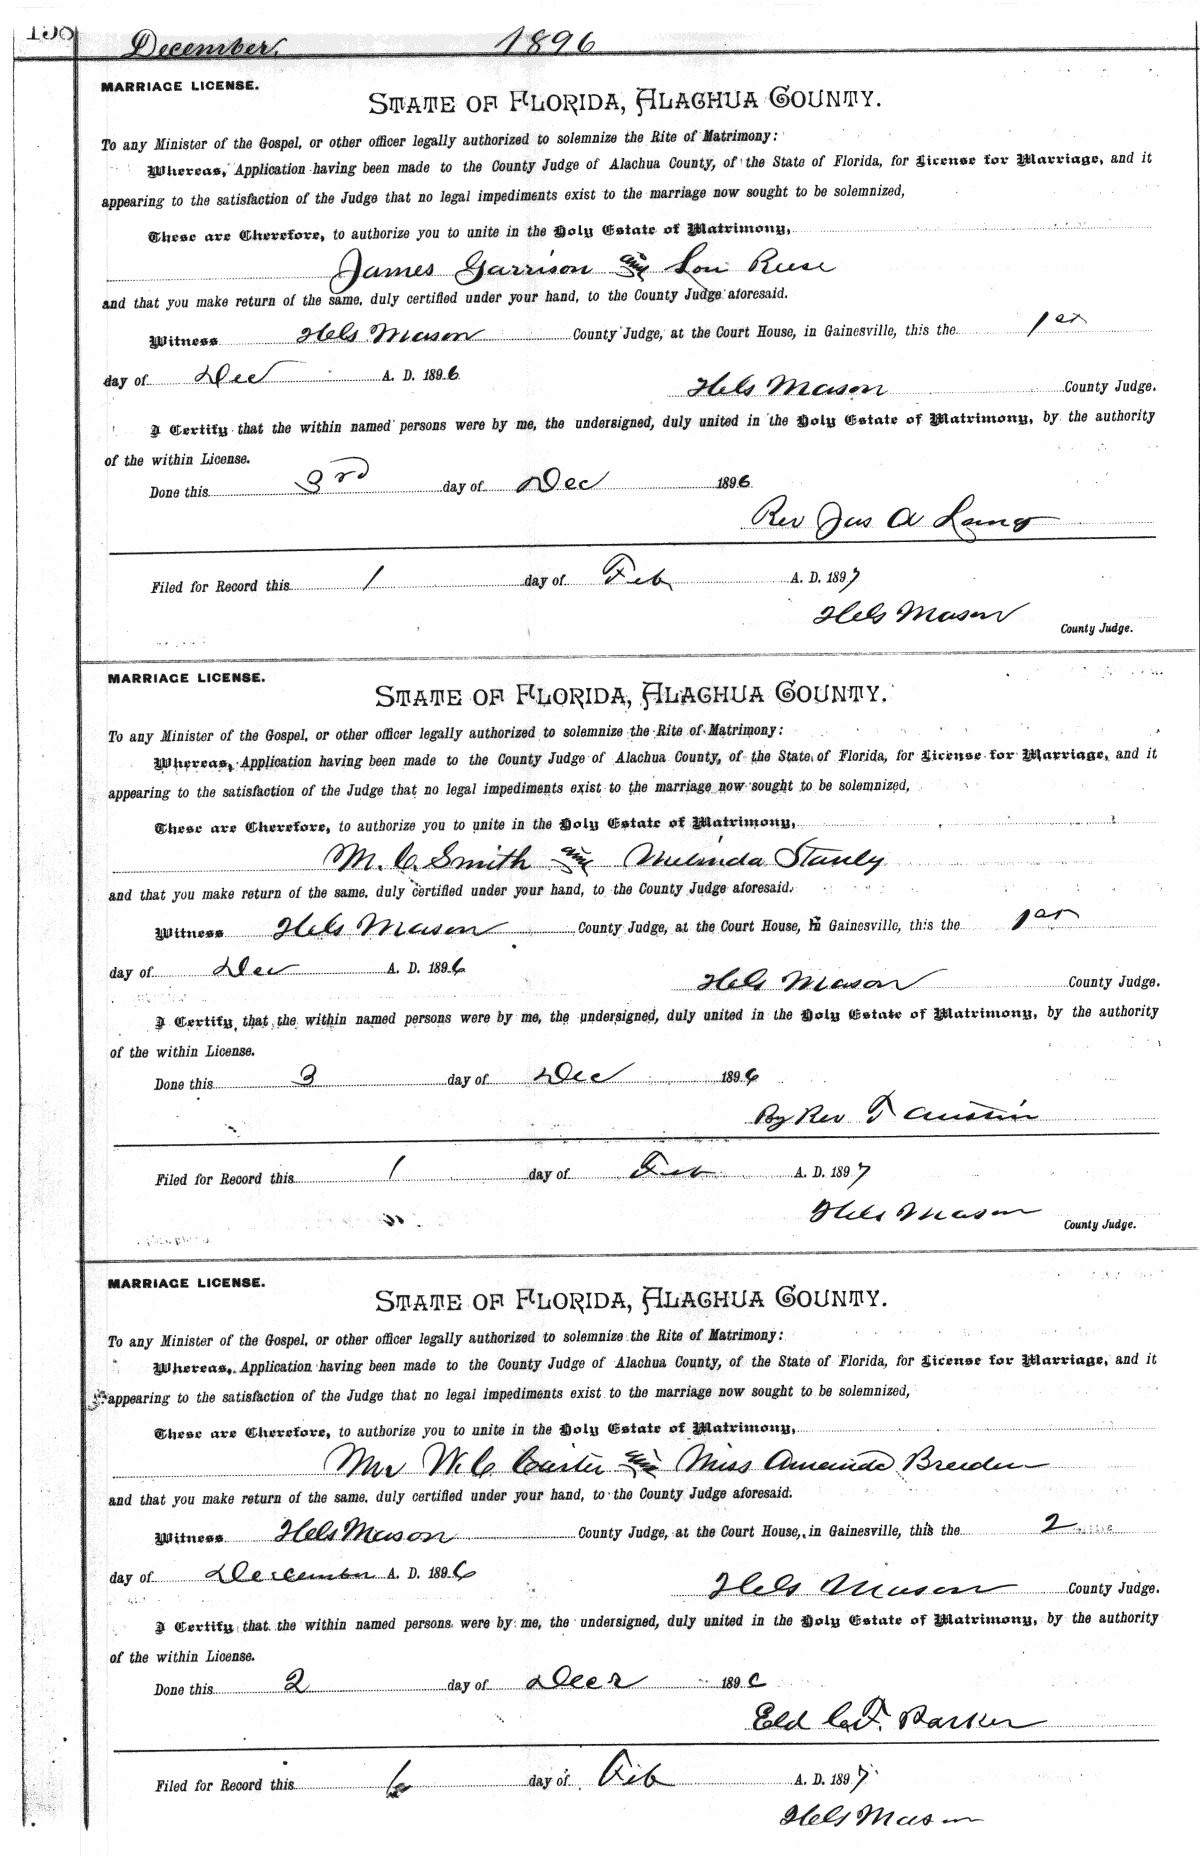 158
December. 1896
MARRIAGE LICENSE.
STATE OF FLORIDA, ALACHUA COUNTY.
To any Minister of the Gospel, or other officer legally authorized to solemnize the Rite of Matrimony:
Whereas, Application having been made to the County Judge of Alachua County, of the State of Florida, for License for Marriage, and it
appearing to the satisfaction of the Judge that no legal impediments exist to the marriage now sought to be solemnized,
These are Therefore, to authorize you to unite in the Holy Estate of Matrimony,
James Garrison and Lou Reese
and that you make return of the same, duly certified under your hand, to the County Judge aforesaid.
Witness Mason County Judge, at the Court House, in Gainesville, this the 1st
day of Dec A. D. 1896
Mason County Judge.
I Certify that the within named persons were by me, the undersigned, duly united in the Holy Estate of Matrimony, by the authority
of the within License.
Done this 3rd day of Dec 1896
Rev Jas A Long
Filed for Record this 1 day of Feb A. D. 1897
Mason
County Judge.
MARRIAGE LICENSE.
STATE OF FLORIDA, ALACHUA COUNTY.
To any Minister of the Gospel, or other officer legally authorized to solemnize the Rite of Matrimony:
Whereas, Application having been made to the County Judge of Alachua County, of the State of Florida, for License for Marriage, and it
appearing to the satisfaction of the Judge that no legal impediments exist to the marriage now sought to be solemnized,
These are Therefore, to authorize you to unite in the Holy Estate of Matrimony,
M. C. Smith and Melinda Stanly
and that you make return of the same, duly certified under your hand, to the County Judge aforesaid.
Witness Mason County Judge, at the Court House, in Gainesville, this the 1st
day of Dec A. D. 1896
Mason County Judge.
I Certify that the within named persons were by me, the undersigned, duly united in the Holy Estate of Matrimony, by the authority
of the within License.
Done this 3 day of Dec 1896
By Rev T Austin
Filed for Record this 1 day of Feb A. D. 1897
Mason
County Judge.
MARRIAGE LICENSE.
STATE OF FLORIDA, ALACHUA COUNTY.
To any Minister of the Gospel, or other officer legally authorized to solemnize the Rite of Matrimony:
Whereas, Application having been made to the County Judge of Alachua County, of the State of Florida, for License for Marriage, and it
appearing to the satisfaction of the Judge that no legal impediments exist to the marriage now sought to be solemnized,
These are Therefore, to authorize you to unite in the Holy Estate of Matrimony,
Mr W. C Carter and Miss Amanda Breeden
and that you make return of the same, duly certified under your hand, to the County Judge aforesaid.
Witness Mason County Judge, at the Court House, in Gainesville, this the 2
day of December A. D. 1896
Mason County Judge.
I Certify that the within named persons were by me, the undersigned, duly united in the Holy Estate of Matrimony, by the authority
of the within License.
Done this 2 day of Decr 1896
Eld Parker
Filed for Record this 6 day of Feb A. D. 1897
Mason